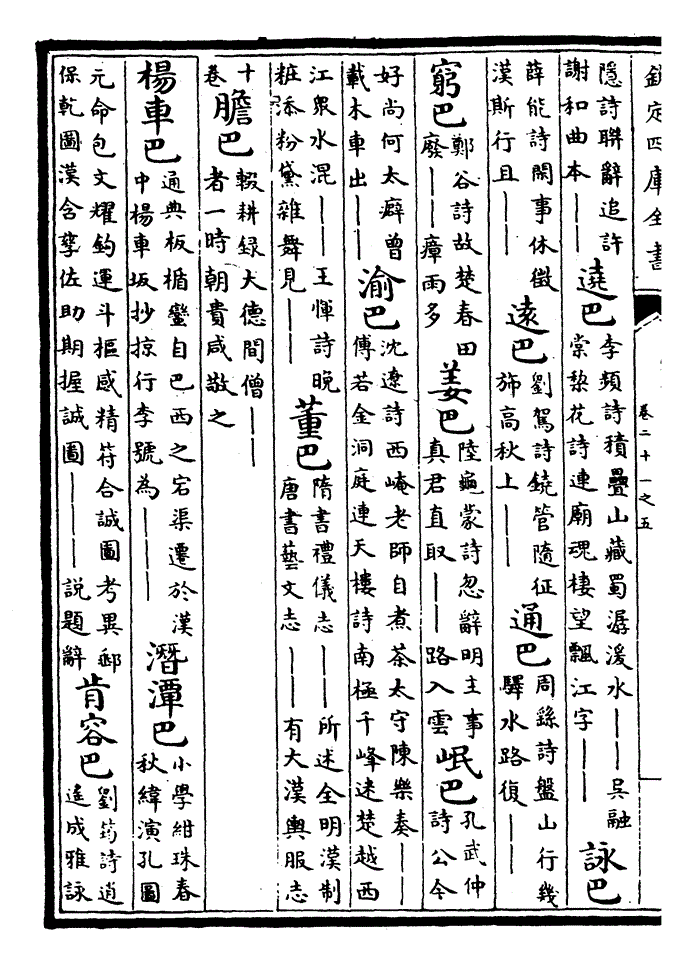 欽定四庫全書 卷二十一之五
隱詩聯辭追許謝和曲本——遶巴李頻詩積疊山藏蜀潺湲水——吳融棠棃花詩連廟魂棲望飄江字——詠巴
薛能詩閣事休徵漢斯行且——遠巴劉駕詩鐃管隨征斾高秋上——通巴周繇詩盤山行幾驛水路復——
窮巴鄭谷詩故楚春田廢——瘴雨多姜巴陸龜蒙詩忽辭明主事真君直取——路入雲岷巴孔武仲詩公今
好尚何太癖曾載木車出——渝巴沈遼詩西崦老師自煮茶太守陳樂奏——傅若金洞庭連天樓詩南極千峰迷楚越西
江衆水混——王惲詩晚粧添粉黛雜舞見——董巴隋書禮儀志——所述全明漢制唐書藝文志——有大漢輿服志
十卷膽巴輟耕録大德間僧——者一時朝貴咸敬之
楊車巴通典板楯蠻自巴西之宕渠遷於漢中楊車坂抄掠行李號為———潛潭巴小學紺珠春秋緯演孔圖
元命包文耀鈎運斗樞感精符合誠圖考異郵保乾圖漢含孳佐助期握誠圖———説題辭肯容巴劉筠詩逍遙成雅詠